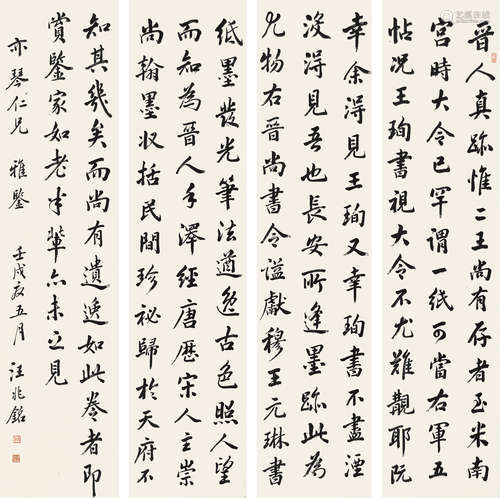 晋人真跡惟二王尚有存者至米南
宮時大令已罕謂一紙可當右軍五
帖况王珣書視大令不尤難覯耶阮
幸余得見王珣又幸珣書不盡湮
没得見吾也長安所逢墨跡此為
尤物右晋尚書令謚獻穆王元琳書
紙墨發光筆法遒逸古色照人望
而知為晋人手澤經唐歷宋人主崇
尚翰墨収括民間珍祕歸於天府不
知其幾矣而尚有遺逸如此卷者即
賞鑒家如老米輩亦未之見
亦琴仁兄 雅鑒 壬戌夏五月 汪兆銘